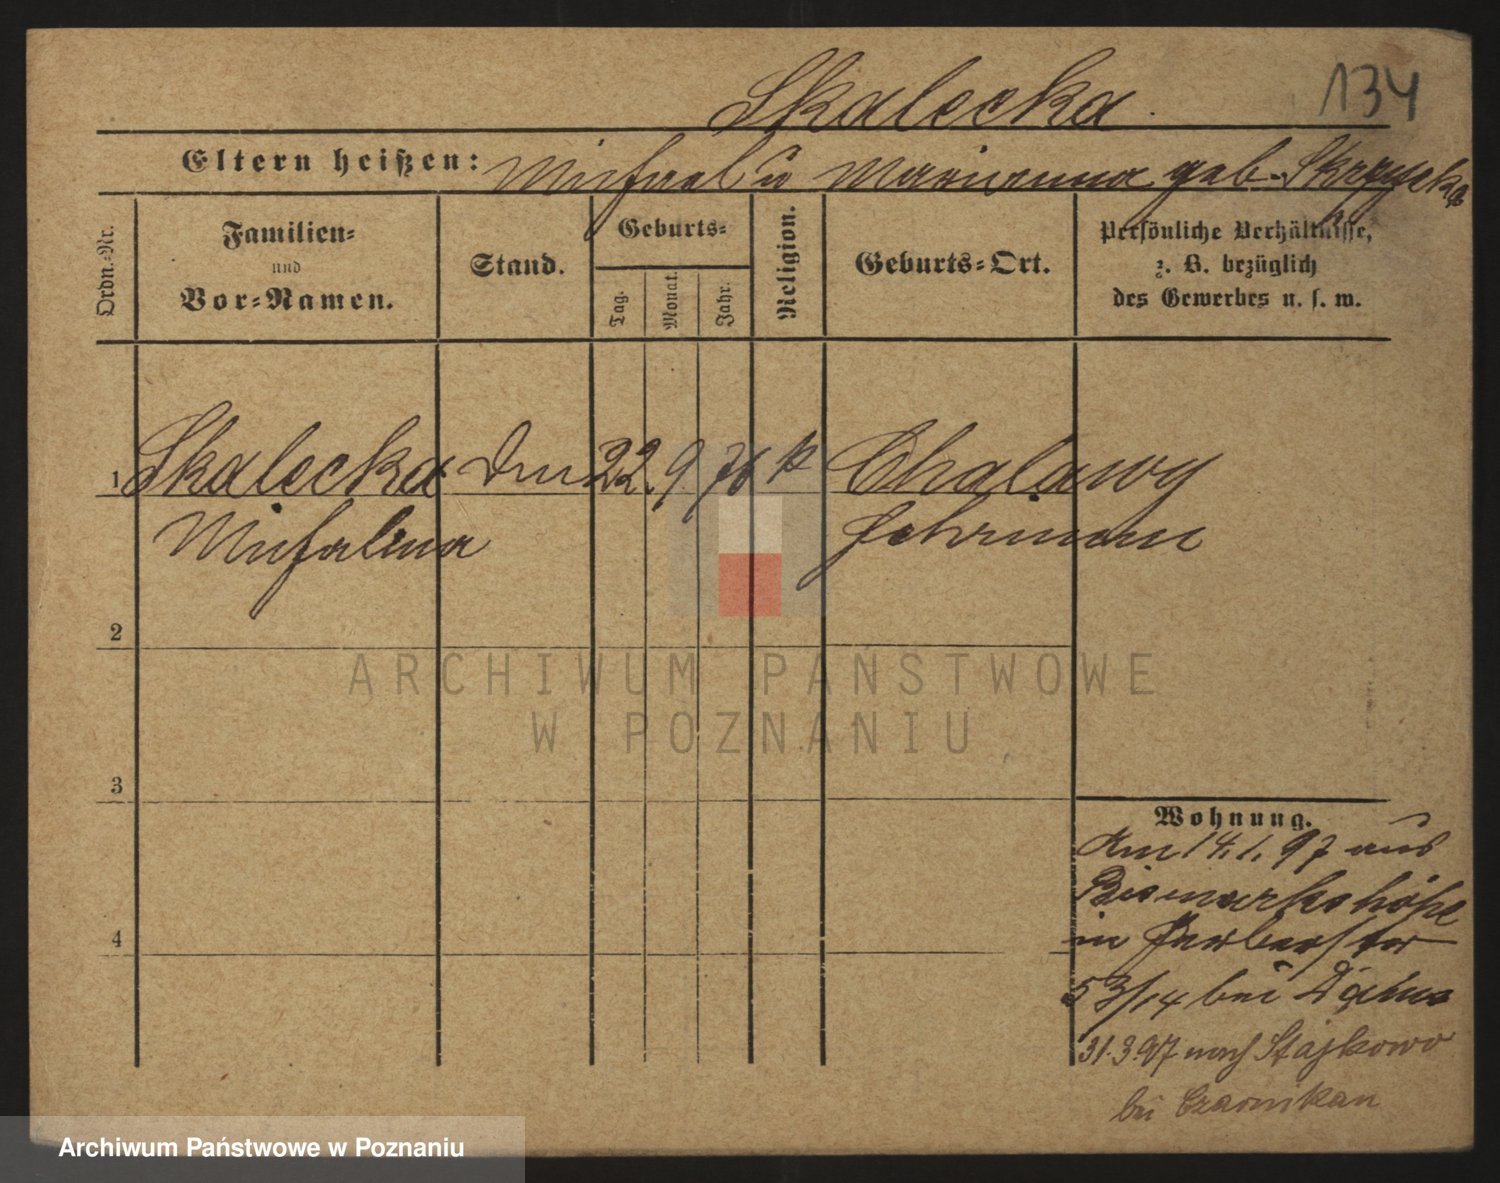 134
Skalecka.
Eltern heißen: Michael u Marianna geb. Skrzypek
Ordn.-Nr.
Familien-
und
Vor-Namen.
Stand.
Geburts-
Tag.
Monat.
Jahr.
Religion.
Geburts-Ort.
Persönliche Verhältnisse,
z. B. bezüglich
des Gewerbes u. s. w.
1 Skalecka 22. 9 76 k Chalawy
Michalina
2
3
4
ARCHIWUM PAŃSTWOWE
W POZNANIU
Wohnung.
Am 14.1.97 aus
Bismarkshöhe
in
53/14 bei
31.3.97 nach Stajkowo
bei Czarnikau
Archiwum Państwowe w Poznaniu